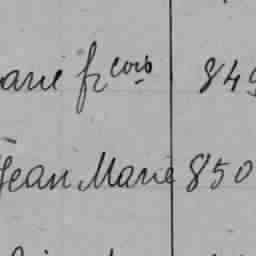 arie frçois 849
Jean Marie 850